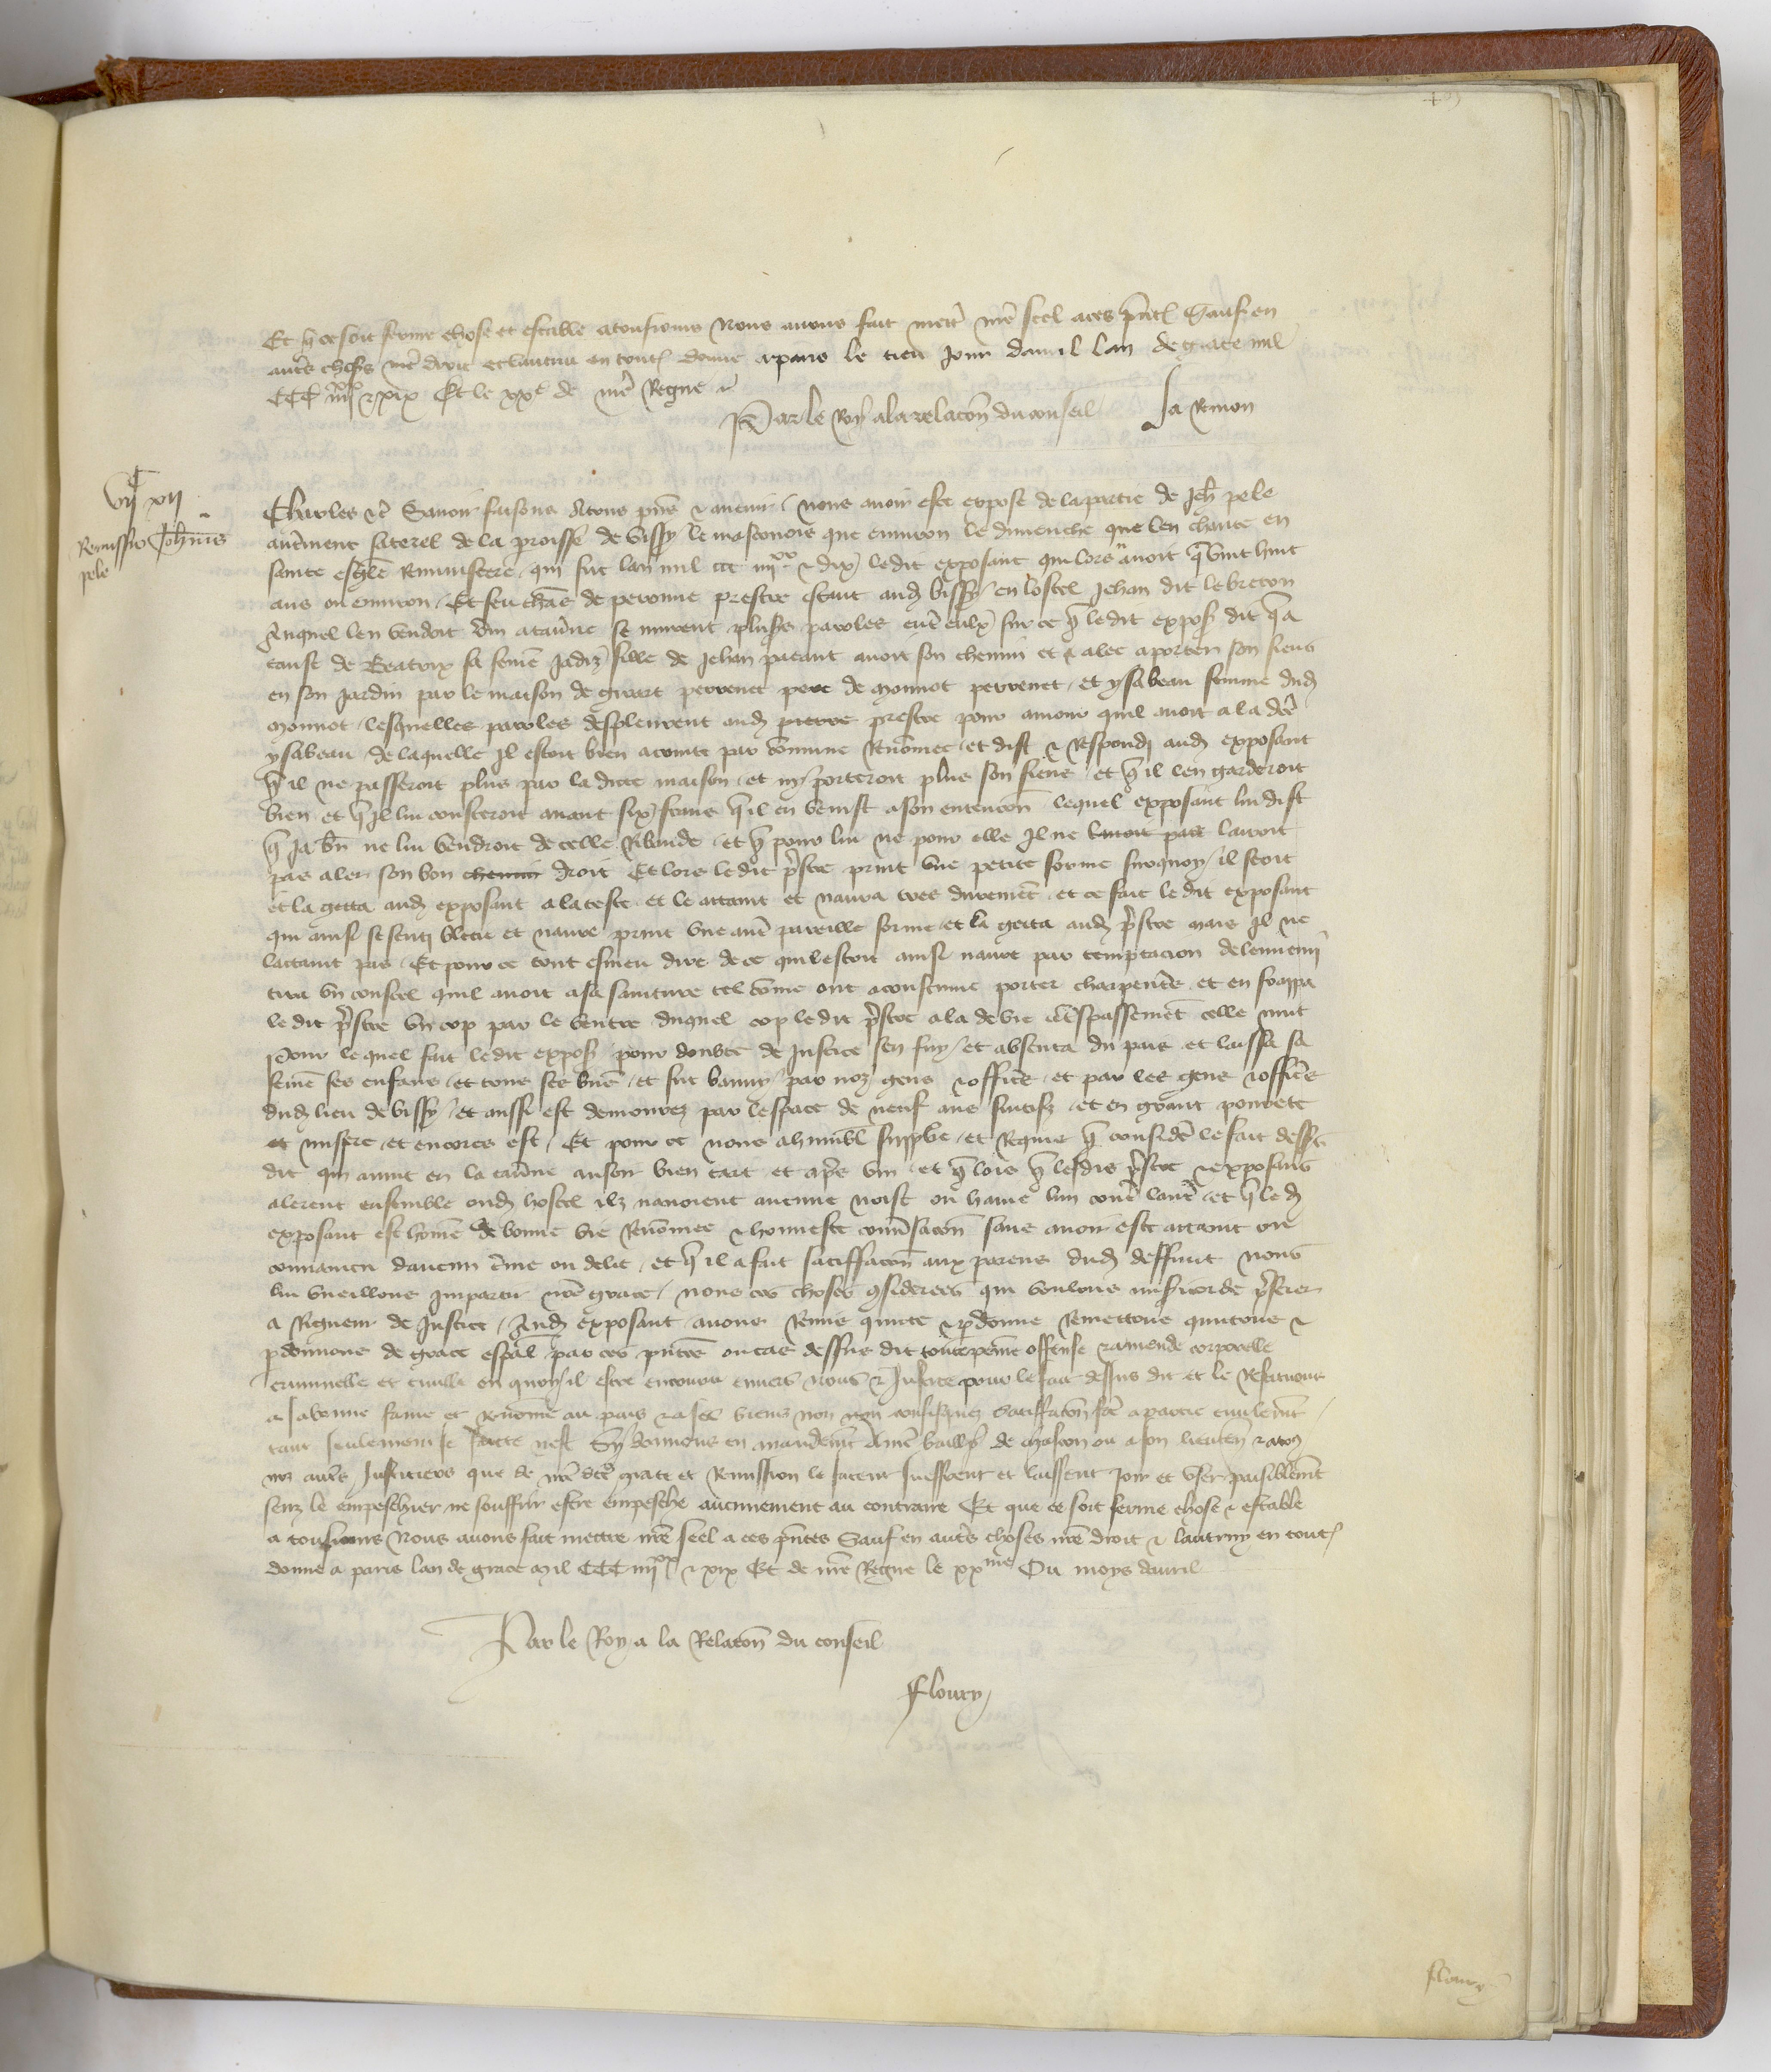 Et q̃ ce soit ferme chose et estable a tousiours Nous auons fait mett̃ nr̃e scel a ces p̃nt Sauf en
autr̃s choses nr̃e droit et lautrui en tout Donne a paris le tiers Jour dauril lan de grace mil
CCC iiiixx xix Et le xxe de nr̃e Regne
Par le Roy a la relacõn du conseil Ja Remon
vijc xij
Remissio Joh̃nis
pele
Charles &c̃ Sauoir faisons A tous pñs & auenir / nous auoir este expose de la partie de Jeh̃ pele
autr̃ment saterel de la p̃roisse de vissy le masconois que enuiron le dimenche que len chante en
sainte esgl̃e Reminiscere / qui fut lan mil ccc iiiixx & dix ledit exposant qui lors auoit q̃ vint huit
ans ou enuiron / Et feu de peronne prestre estant aud vissy en lostel Jehan dit le breton
ouquel len vendoit vin a tau̾ne se murent plus̾s paroles entr̃e eulx sur ce q̃ ledit expos dit q̃ a
cause de Beatrix sa fem̃e Jadiz fille de Jehan patant auoit son chemin et a porter son fiens
en son Jardin par le maison de girart perrenet pere de monnot perrenet / et ysabeau femme dud
monnot / lesquelles paroles despleurent aud prestre pour amour quil auoit a la dicte
ysabeau / de laquelle Il estoit bien acointe par com̃mune Ren̾omee / et dist & Respondi aud exposant
q̃ il ne passeroit plus par la dicte maison / et ny porteroit plus son fiens / et q̃ il len garderoit
bien et q̃ Il lui consteroit auant six frans q̃ il en venist a son entencõn lequel exposant lui dist
q̃ Ja bñ ne lui vendroit de celle Ribaude / et q̃ pour lui ne pour elle Il ne lairoit
pas aler son bon chemin droit Et lors ledit p̃stre print vne petite forme surquoy il seoit
et la getta aud exposant a la teste et le attaint et naura tres durement̃ / et ce fait le dit exposant
qui ainsi se senti blecie et naure print vne autr̃e pareille forme et la geita aud p̃stre mais Il ne
lattaint pas / Et pour ce tout esmeu dire de ce quil estoit ainsi naure par temptacion de lennemi
tira vn coustel quil auoit a sa sainture tel com̃e ont acoustume porter charpent̃s et en frappa
le dit p̃stre vn cop par le ventre duquel cop ledit p̃stre ala de vie a tr̃espassement̃ celle nuit
Pour lequel fait ledit expos / pour doubte de Justice sen fuy et absenta du pais et laissa sa
fem̃e ses enfans / et tous ses biens / et fut banny par noz gens & offic̃s / et par les gens & offic̃s
dud lieu de vissy / et aussi est demourez par lespace de neuf ans fuitifz / et en grant pourete
et misere / et encores est / Et pour ce nous a humbl̃ supplie / et Requis q̃ consider̃e le fait dessus
dit qui auint en la tau̾ne au soir bien tart et apr̃s vin / et q̃ lors q̃ lesdis p̃stre & exposans
alerent ensemble oud hostel ilz nauoient aucune noise ou haine lun contr̃e lautr̃e et q̃ led
exposant est hom̃e de bonne vie Ren̾omee & honneste conu̾sacõn sans auoir este attaint ou
conuaincu daucun cr̃ime ou delit / et q̃ il a fait satisfacõn aux parens dud deffunt nous
lui vueillons Impartir nr̃e grace / nous ces choses considerees qui voulons mis̾icorde p̃ferer
a Rigueur de Justice / Aud exposant auons Remis quitte & p̃donne Remettons quittons &
p̃donnons de grace esp̃al par ces p̃ntes ou cas dessus dit toute peine offense & amende corporelle
criminelle et ciuille en quoy il estre encouru enuers nous & Justice pour le fait dessus dit et le Restituons
a sa bonne fame et Ren̾ome au pais & a ses biens non confisquez Satisfacõn fce a partie ciuilem̃t
tant seulement se faicte nest Sy donnons en mandem̃t Au bailly de Mascon ou a son lieuten & a touz
noz autr̃s Justiciers que de nr̃e dce grace et Remission le facent seuffrent et laissent Joir et vser paisiblem̃t
senz le empeschier ne souffrir estre empesche aucunement au contraire Et que ce soit ferme chose & estable
a tousiours Nous auons fait mettre nr̃e seel a ces p̃ntes Sauf en autr̃s choses nr̃e droit & lautruy en tout
donne a paris lan de grace Mil CCC iiiixx & xix Et de nr̃e Regne le xxme Ou moys dauril
Par le Roy a la Relacõn du conseil
Floury